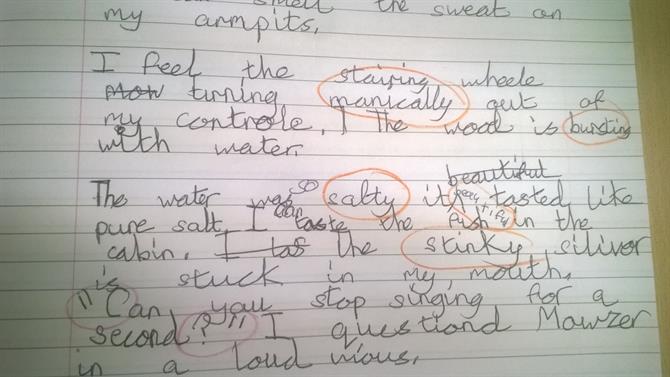 smell the sweat on
my armpits.
I feel the stairing wheele
turning manically out of
my controle. The wood is bursting
with water.
beautiful
The water was so salty it tasted like
pure salt. I can taste the fish in the
cabin. I tas the stinky siliver
is stuck in my mouth.
"Can you stop singing for a
second?" I questiond Mowzer
in a loud vious.